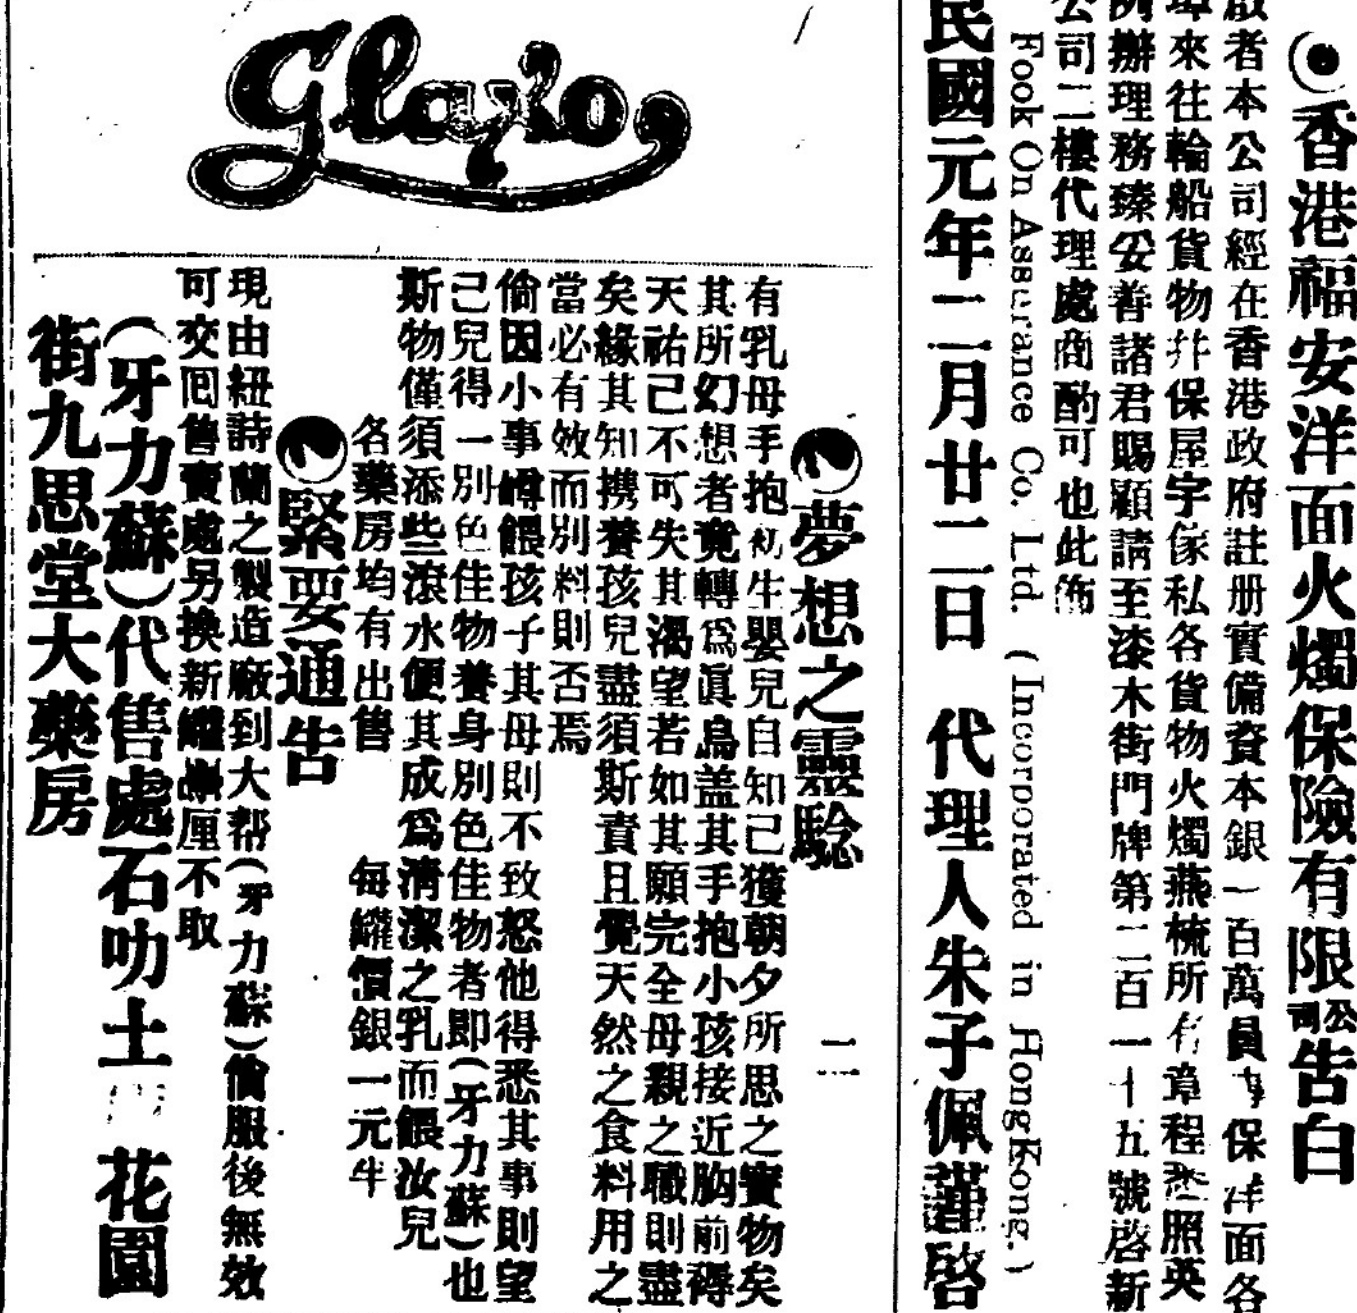 香港福安洋面火燭保險有限公司告白
啟者本公司經在香港政府註册實備資本銀一百萬員專保洋面各
埠來往輪船貨物幷保屋宇傢私各貨物火燭燕梳所有章程悉照英
例辦理務臻妥善諸君賜顧請至漆木街門牌第二百一十五號啓新
公司二樓代理處商酌可也此佈
Fook On Assurance Co. Ltd. (Incorporated in Hong Kong.)
民國元年二月廿二日 代理人朱子佩謹啓
Glaxo,
夢想之靈驗 二
有乳母手抱初生嬰兒自知己獲朝夕所思之實物矣
其所幻想者竟轉爲眞鳥盖其手抱小孩接近胸前碍
天祐己不可失其渴望若如其願完全母親之職則盡
矣緣其知携養孩兒盡須斯責且覺天然之食料用之
當必有效而別料則否焉
倘因小事嶟餵孩子其母則不致怒他得悉其事則望
己兒得一別色佳物養身別色佳物者即(牙力蘇)也
斯物僅須添些滾水便其成爲淸潔之乳而餵汝兒
各藥房均有出售 每罐價銀一元半
緊要通告
現由紐詩蘭之製造廠到大帮(牙力蘇)倘服後無效
可交囘售賣處另換新罐厘不取
(牙力蘇)代售處石叻土 花園
街九思堂大藥房